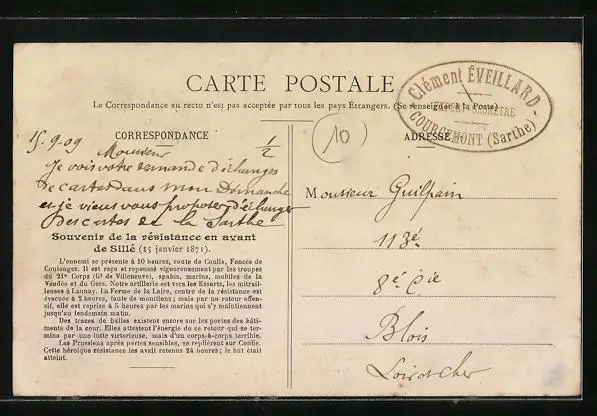 CARTE POSTALE
La Correspondance au recto n'est pas acceptée par tous les pays Étrangers. (Se renseigner à la Poste)
Clément ÉVEILLARD
COURCEMONT (Sarthe)
CORRESPONDANCE
ADRESSE
10
15-9-09
1/2
Monsieur
Je vois votre demande d'échanges
de cartes dans mon Dimanche
et je viens vous proposer d'échanger
des cartes de la Sarthe
Souvenir de la résistance en avant
de Sillé (15 janvier 1871).
L'ennemi se présente à 10 heures, route de Conlie, Foncée de
Coulouges. Il est reçu et repoussé vigoureusement par les troupes
du 21e Corps (Gl de Villeneuve), spahis, marins, mobiles de la
Vendée et du Gers. Notre artillerie est vers les Essarts, les mitrail-
leuses à Launay. La Ferme de la Laire, centre de la résistance est
évacuée à 2 heures, faute de munitions ; mais par un retour offen-
sif, elle est reprise à 5 heures par les marins qui s'y maintiennent
jusqu'au lendemain matin.
Des traces de balles existent encore sur les portes des bâti-
ments de la cour. Elles attestent l'énergie de ce retour qui se ter-
mina par une lutte victorieuse, mais d'un corps-à-corps terrible.
Les Prussiens après pertes sensibles, se replièrent sur Conlie.
Cette héroïque résistance les avait retenus 24 heures ; le but était
atteint.
Monsieur Guilpain
113e
8e Cie
Blois
Loir et Cher